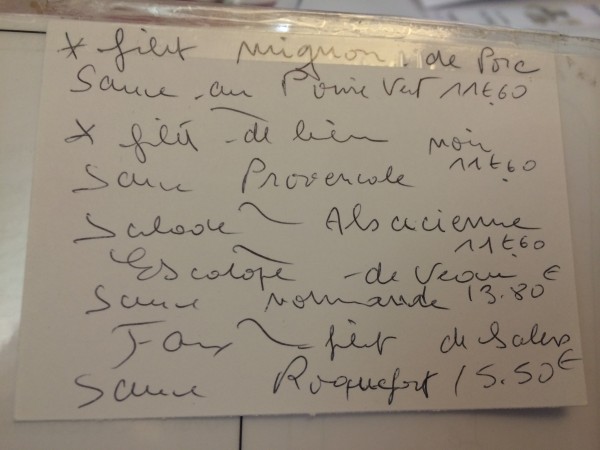 * filet mignon de Porc
Sauce au Poivre Vert 11€60
* filet de lieu noir
11€60
Sauce Provencale
Salade Alsacienne
11€60
Escalope de Veau
Sauce normande 13.80€
Faux filet de Salers
Sauce Roquefort 15.50€